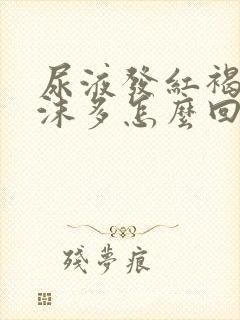 尿液發紅褐
沫多怎麼回
殘夢痕